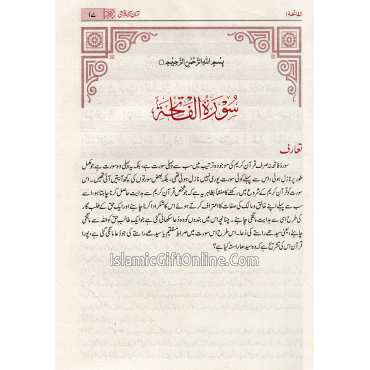 الفاتحہ ۱
۱۷
آسان ترجمۂ قرآن
بِسْمِ اللّٰهِ الرَّحْمٰنِ الرَّحِيْمِ
سُوْرَةُ الْفَاتِحَةِ
تعارف
سورۂ فاتحہ نہ صرف قرآن کریم کی موجودہ ترتیب میں سب سے پہلی سورت ہے، بلکہ یہ پہلی وہ سورت ہے جو مکمل
طور پر نازل ہوئی، اس سے پہلے کوئی سورت پوری نہیں نازل ہوئی تھی، بلکہ بعض سورتوں کی کچھ آیتیں آئی تھیں۔ اس
سورت کو قرآن کریم کے شروع میں رکھنے کا منشأ بظاہر یہ ہے کہ جو شخص قرآن کریم سے ہدایت حاصل کرنا چاہتا ہو، اسے
سب سے پہلے اپنے خالق و مالک کی صفات کا اعتراف کرتے ہوئے اس کا شکر ادا کرنا چاہئے اور ایک حق کے طلب گار
کی طرح اسی سے ہدایت مانگنی چاہئے۔ چنانچہ اس میں بندوں کو وہ دُعا سکھائی گئی ہے جو ایک طالبِ حق کو اللہ سے مانگنی
چاہئے، یعنی سیدھے راستے کی دُعا۔ اس طرح اس سورت میں صراطِ مستقیم یا سیدھے راستے کی جو دُعا مانگی گئی ہے، پورا
قرآن اس کی تشریح ہے کہ وہ سیدھا راستہ کیا ہے؟
IslamicGiftOnline.Com